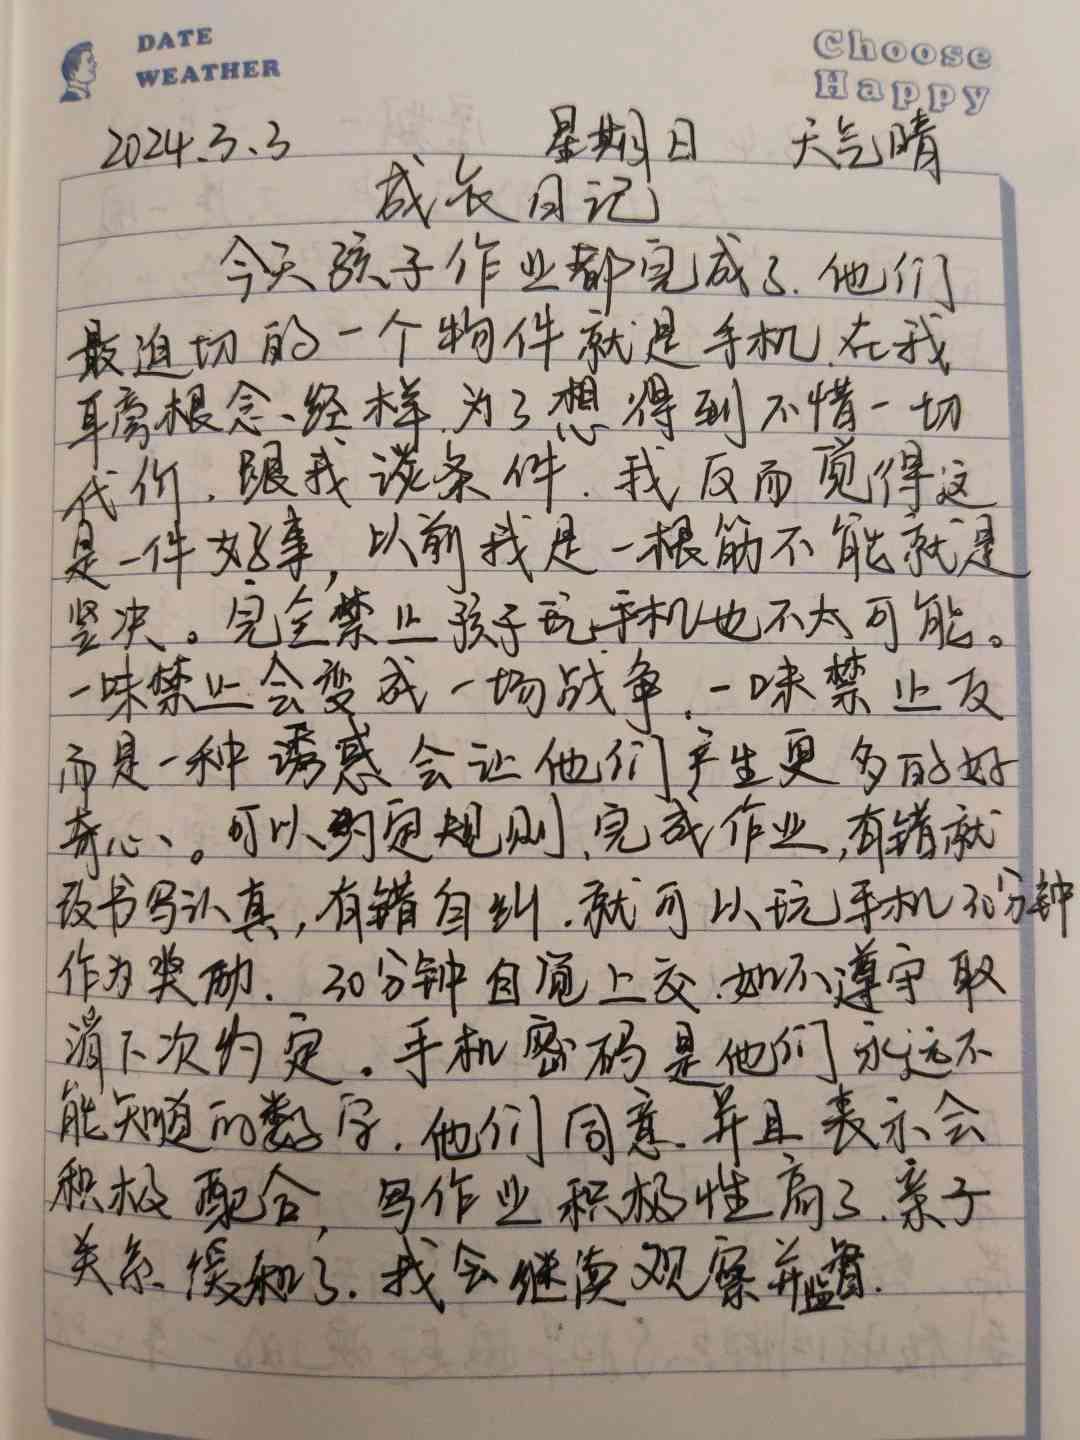 DATE
WEATHER
Choose
Happy
2024.3.3 星期日 天气晴
成长日记
今天孩子作业都完成了.他们
最迫切的一个物件就是手机.在我
耳旁根念、经样.为了想得到不惜一切
代价.跟我谈条件.我反而觉得这
是一件好事,以前我是一根筋不能就是
坚决。完全禁止孩子玩手机也不太可能。
一味禁止会变成一场战争.一味禁止反
而是一种诱惑会让他们产生更多的好
奇心、。可以约定规则、完成作业,有错就
改书写认真,有错自纠.就可以玩手机30分钟
作为奖励.30分钟自觉上交.如不遵守取
消下次约定.手机密码是他们永远不
能知道的数字.他们同意.并且表示会
积极配合,写作业积极性高了.亲子
关系缓和了.我会继续观察并监督.